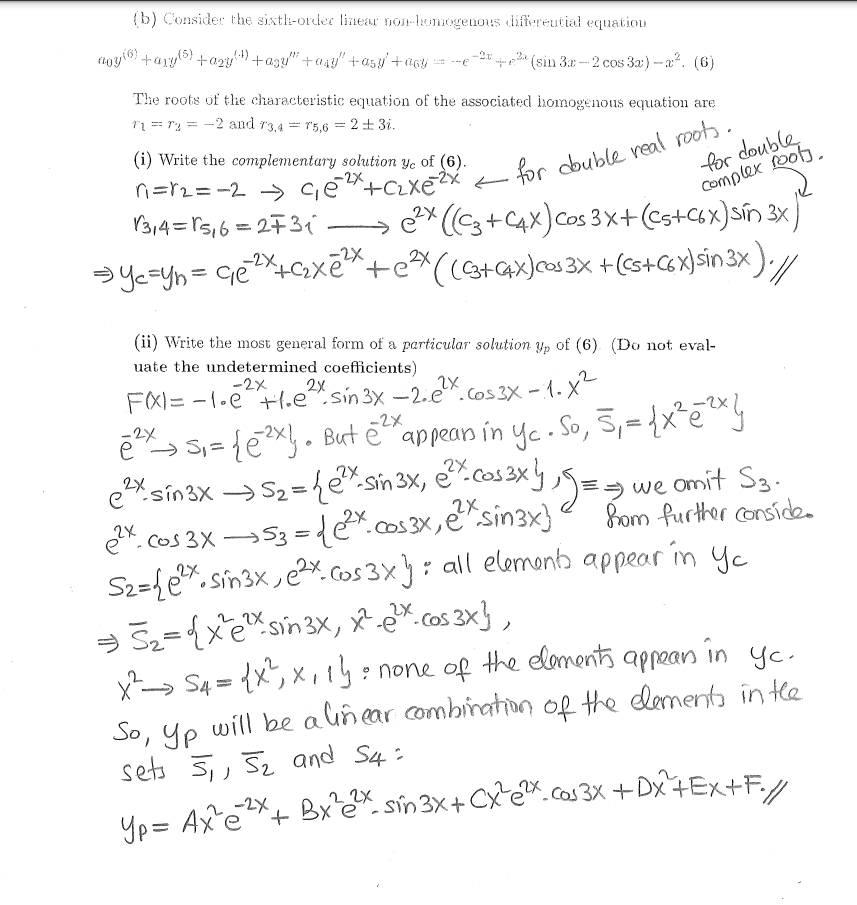 (b) Consider the sixth-order linear non-homogenous differential equation
a₀y⁽⁶⁾ + a₁y⁽⁵⁾ + a₂y⁽⁴⁾ + a₃y''' + a₄y'' + a₅y' + a₆y = -e⁻²ˣ + e²ˣ (sin 3x – 2 cos 3x) – x². (6)
The roots of the characteristic equation of the associated homogenous equation are
r₁ = r₂ = –2 and r₃,₄ = r₅,₆ = 2 ± 3i.
(i) Write the complementary solution y_c of (6).
for double real roots.
for double
complex roots.
r₁=r₂=-2 → c₁e⁻²ˣ+c₂xe⁻²ˣ ←
r₃,₄=r₅,₆=2∓3i → e²ˣ((c₃+c₄x)cos3x+(c₅+c₆x)sin 3x)
⇒ y_c=y_h= c₁e⁻²ˣ+c₂xe⁻²ˣ+e²ˣ((c₃+c₄x)cos3x+(c₅+c₆x)sin3x).//
(ii) Write the most general form of a particular solution y_p of (6) (Do not eval-
uate the undetermined coefficients)
F(x)= -1.e⁻²ˣ+1.e²ˣ.sin3x-2.e²ˣ.cos3x-1.x²
e⁻²ˣ → S₁={e⁻²ˣ}. But e⁻²ˣ appears in y_c. So, S̄₁={x²e⁻²ˣ}
e²ˣ.sin3x → S₂={e²ˣ.sin3x, e²ˣ.cos3x}, ≡ ⇒ we omit S₃.
e²ˣ.cos3x → S₃={e²ˣ.cos3x, e²ˣ.sin3x} from further conside.
S₂={e²ˣ.sin3x, e²ˣ.cos3x}: all elements appear in y_c
⇒ S̄₂={x²e²ˣ.sin3x, x².e²ˣ.cos3x},
x² → S₄={x²,x,1}: none of the elements appears in y_c.
So, y_p will be a linear combination of the elements in the
sets S̄₁, S̄₂ and S₄:
y_p= Ax²e⁻²ˣ+Bx²e²ˣ.sin3x+Cx²e²ˣ.cos3x+Dx²+Ex+F.//